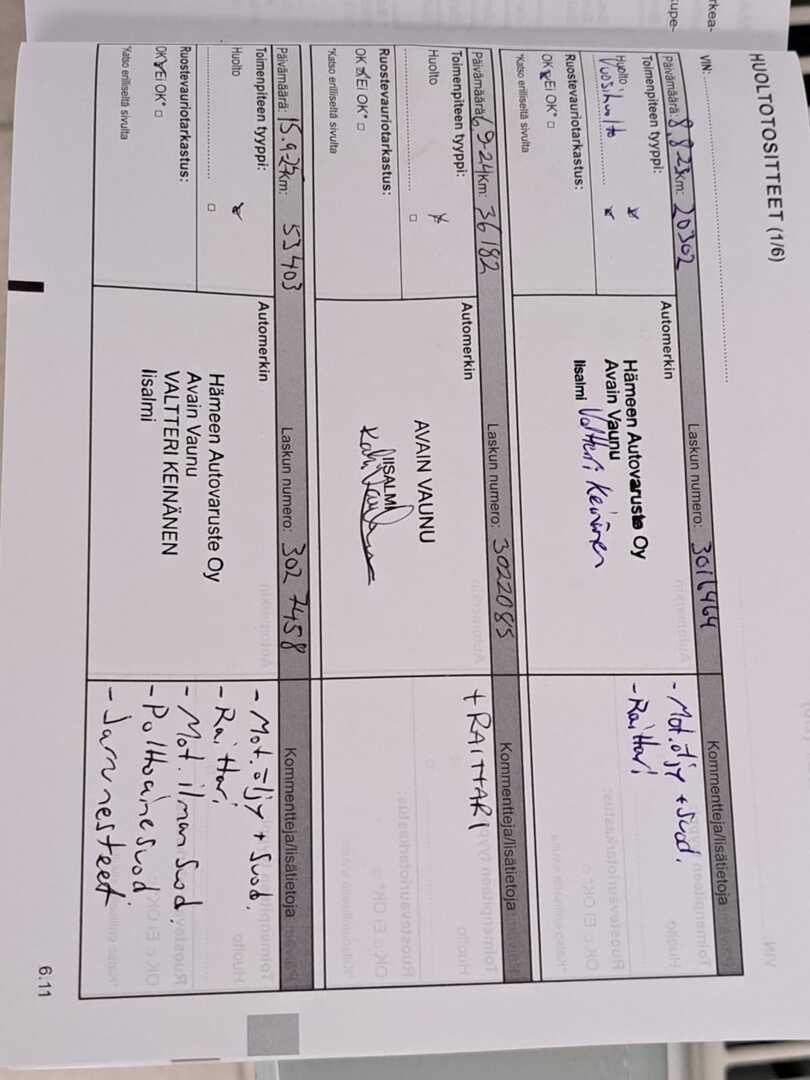 HUOLTOTOSITTEET (1/6)
VIN:
Päivämäärä: 8.8.23 Km: 20302
Laskun numero: 3016464
Kommentteja/lisätietoja
Toimenpiteen tyyppi:
Huolto
Vuosihuolto
Ruostevauriotarkastus:
OK Ei OK* □
*Katso erilliseltä sivulta
Automerkin
Hämeen Autovaruste Oy
Avain Vaunu
Iisalmi Valtteri Keinänen
- Mot.öljy + suod.
- Raittari
Päivämäärä: 6.9-24 Km: 36182
Laskun numero: 3022085
Kommentteja/lisätietoja
Toimenpiteen tyyppi:
Huolto
□
Ruostevauriotarkastus:
OK Ei OK* □
*Katso erilliseltä sivulta
Automerkin
AVAIN VAUNU
IISALMI
+ RAITTARI
Päivämäärä: 15.9.25 Km: 53403
Laskun numero: 3027458
Kommentteja/lisätietoja
Toimenpiteen tyyppi:
Huolto
□
Ruostevauriotarkastus:
OK Ei OK* □
*Katso erilliseltä sivulta
Automerkin
Hämeen Autovaruste Oy
Avain Vaunu
VALTTERI KEINÄNEN
Iisalmi
- Mot.öljy + suod.
- Raittari
- Mot. ilmansuod.
- Polttoainesuod.
- Jarrunesteet
6.11
rkea-
upe-